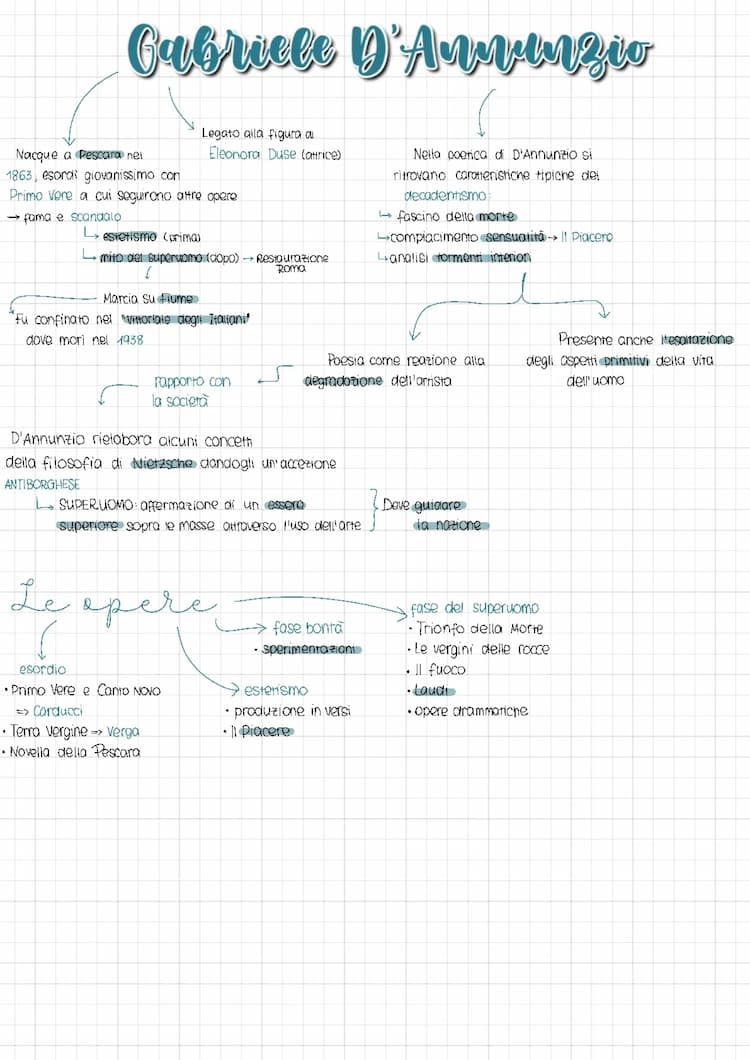 Gabriele D'Annunzio
Nacque a Pescara nel
1863, esordì giovanissimo con
Primo Vere a cui seguirono altre opere
→ fama e scandalo
estetismo (prima)
mito del superuomo (dopo) → Restaurazione
Roma
Marcia su Fiume
Fu confinato nel "Vittoriale degli Italiani"
dove morì nel 1938
Legato alla figura di
Eleonora Duse (attrice)
Nella poetica di D'Annunzio si
ritrovano caratteristiche tipiche del
decadentismo:
fascino della morte
compiacimento sensualità → Il Piacere
analisi tormenti interiori
Poesia come reazione alla
degradazione dell'artista
Presente anche l'esaltazione
degli aspetti primitivi della vita
dell'uomo
rapporto con
la società
D'Annunzio rielabora alcuni concetti
della filosofia di Nietzsche dandogli un'accezione
ANTIBORGHESE
SUPERUOMO: affermazione di un essere
superiore sopra le masse attraverso l'uso dell'arte
Deve guidare
la nazione
Le opere
esordio
• Primo Vere e Canto Novo
=> Carducci
• Terra Vergine => Verga
• Novella della Pescara
fase bontà
• sperimentazioni
estetismo
• produzione in versi
• Il Piacere
fase del superuomo
• Trionfo della Morte
• Le vergini delle rocce
• Il fuoco
• Laudi
• opere drammatiche